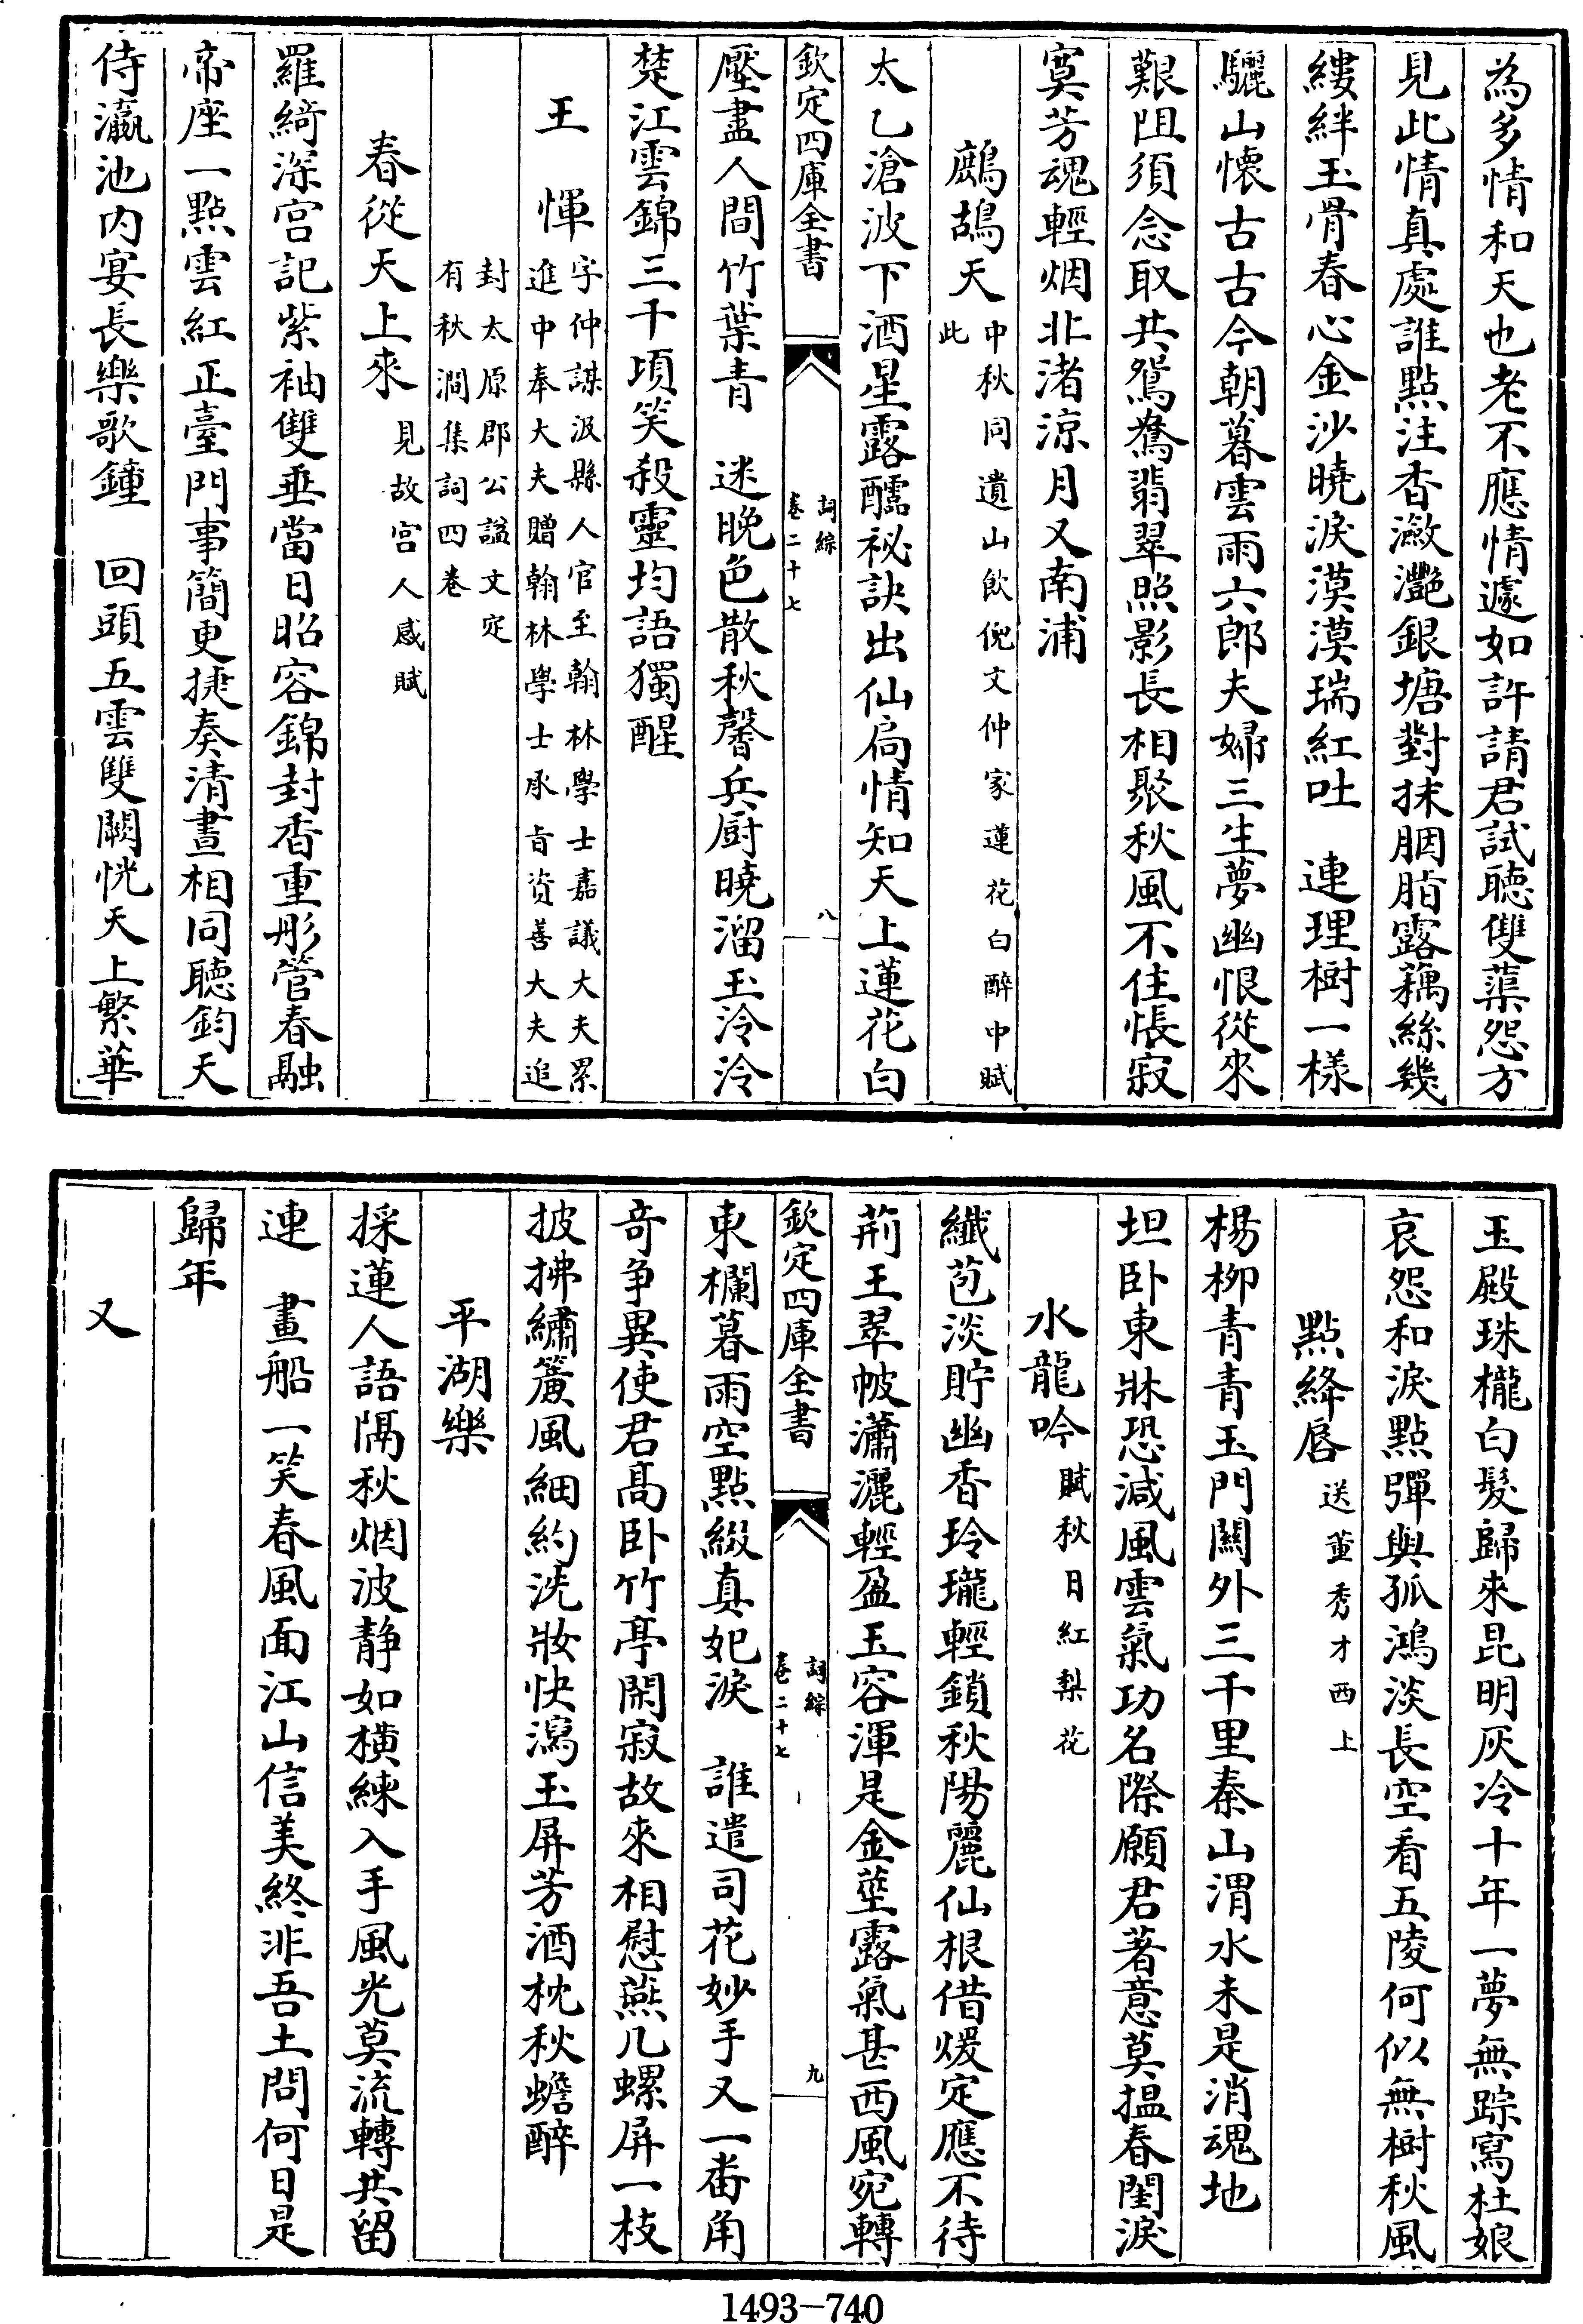 為多情和天也老不應情遽如許請君試聽雙蕖怨方
見此情真處誰點注香瀲灩銀塘對抹胭脂露藕絲幾
縷絆玉骨春心金沙曉淚漠漠瑞紅吐　連理樹一樣
驪山懷古古今朝暮雲雨六郎夫婦三生夢幽恨從來
艱阻須念取共鴛鴦翡翠照影長相聚秋風不住悵寂
寞芳魂輕烟北渚涼月又南浦
鷓鴣天中秋同遺山飲倪文仲家蓮花白醉中賦
此
太乙滄波下酒星露醹祕訣出仙扃情知天上蓮花白
欽定四庫全書
詞綜
卷二十七
八
壓盡人間竹葉青　迷晚色散秋馨兵厨曉溜玉泠泠
楚江雲錦三千頃笑殺靈均語獨醒
王　惲字仲謀汲縣人官至翰林學士嘉議大夫累
進中奉大夫贈翰林學士承旨資善大夫追
封太原郡公諡文定
有秋澗集詞四卷
春從天上來見故宫人感賦
羅綺深宫記紫袖雙垂當日昭容錦封香重彤管春融
帝座一點雲紅正臺門事簡更捷奏清晝相同聽鈞天
侍瀛池内宴長樂歌鐘　回頭五雲雙闕恍天上繁華
玉殿珠櫳白髮歸來昆明灰冷十年一夢無踪寫杜娘
哀怨和淚點彈與孤鴻淡長空看五陵何似無樹秋風
點絳唇送董秀才西上
楊柳青青玉門關外三千里秦山渭水未是消魂地
坦卧東牀恐減風雲氣功名際願君著意莫揾春閨淚
水龍吟賦秋日紅梨花
纖苞淡貯幽香玲瓏輕鎖秋陽麗仙根借煖定應不待
荊王翠帔瀟灑輕盈玉容渾是金莖露氣甚西風宛轉
欽定四庫全書
詞綜
卷二十七
九
東欄暮雨空點綴真妃淚　誰遣司花妙手又一番角
奇争異使君髙卧竹亭閑寂故來相慰燕几螺屏一枝
披拂繡簾風細約洗妝快瀉玉屏芳酒枕秋蟾醉
平湖樂
採蓮人語隔秋烟波静如橫練入手風光莫流轉共留
連　畫船一笑春風面江山信美終非吾土問何日是
歸年
又
1493—740